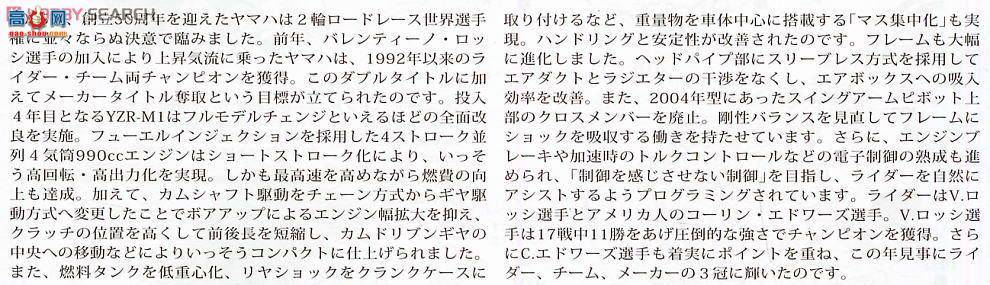 HOBBY SEARCH
gao-shou.com
創立50周年を迎えたヤマハは2輪ロードレース世界選手
権に並々ならぬ決意で臨みました。前年、バレンティーノ・ロッ
シ選手の加入により上昇気流に乗ったヤマハは、1992年以来のラ
イダー・チーム両チャンピオンを獲得。このダブルタイトルに加
えてメーカータイトル奪取という目標が立てられたのです。投入
4年目となるYZR-M1はフルモデルチェンジといえるほどの全面改
良を実施。フューエルインジェクションを採用した4ストローク並
列4気筒990ccエンジンはショートストローク化により、いっそ
う高回転・高出力化を実現。しかも最高速を高めながら燃費の向
上も達成。加えて、カムシャフト駆動をチェーン方式からギヤ駆
動方式へ変更したことでボアアップによるエンジン幅拡大を抑え、
クラッチの位置を高くして前後長を短縮し、カムドリブンギヤの
中央への移動などによりいっそうコンパクトに仕上げられました。
また、燃料タンクを低重心化、リヤショックをクランクケースに
取り付けるなど、重量物を車体中心に搭載する「マス集中化」も実
現。ハンドリングと安定性が改善されたのです。フレームも大幅
に進化しました。ヘッドパイプ部にスリーブレス方式を採用して
エアダクトとラジエターの干渉をなくし、エアボックスへの吸入
効率を改善。また、2004年型にあったスイングアームピボット上
部のクロスメンバーを廃止。剛性バランスを見直してフレームに
ショックを吸収する働きを持たせています。さらに、エンジンブ
レーキや加速時のトルクコントロールなどの電子制御の熟成も進
められ、「制御を感じさせない制御」を目指し、ライダーを自然に
アシストするようプログラミングされています。ライダーはV.ロ
ッシ選手とアメリカ人のコーリン・エドワーズ選手。V.ロッシ選
手は17戦中11勝をあげ圧倒的な強さでチャンピオンを獲得。さら
にC.エドワーズ選手も着実にポイントを重ね、この年見事にライ
ダー、チーム、メーカーの3冠に輝いたのです。